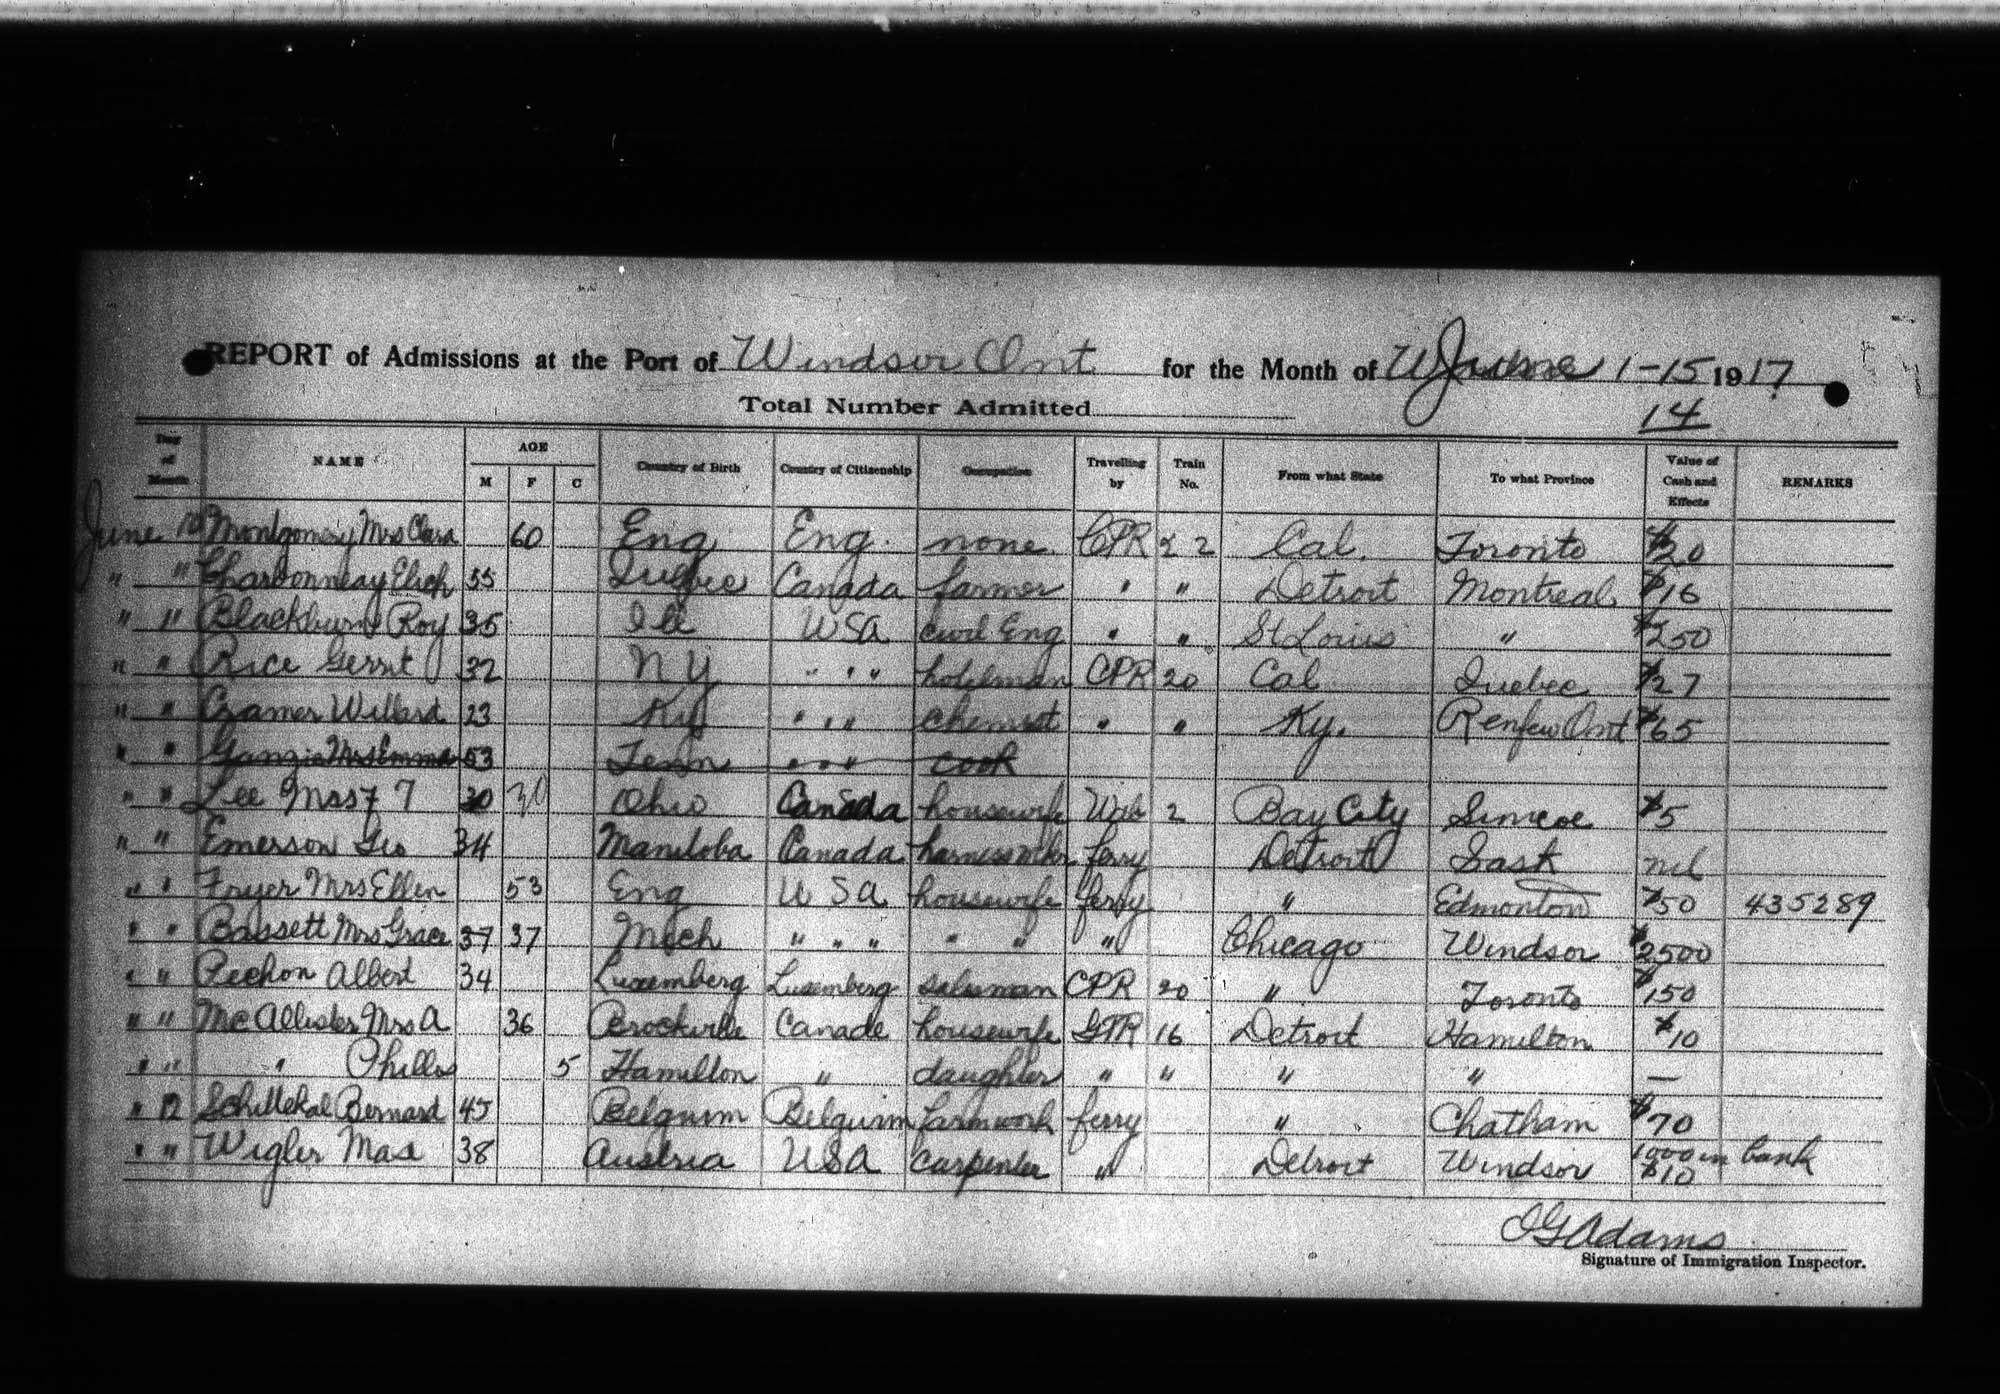 REPORT of Admissions at the Port of Windsor Ont for the Month of June 1-15 1917
Total Number Admitted 14
Day of Month NAME AGE M F C Country of Birth Country of Citizenship Occupation Travelling by Train No. From what State To what Province Value of Cash and Effects REMARKS
June Montgomery Mrs Clara 60 Eng Eng. none CPR 22 Cal. Toronto $20
" " Charbonneay 35 Quebec Canada farmer " " Detroit Montreal $16
" " Blackburn Roy 35 Ill USA civil Eng " " St Louis " $250
" " Rice Gerrit 32 N Y " " " hotelman CPR 20 Cal Quebec $27
" " Cramer Willard 23 Ky " " " chemist " " Ky. Renfew Ont $65
" " Mrs Emma 53 Tenn " " " cook
" " Lee Mrs 30 30 Ohio Canada housewife Wab 2 Bay City Simcoe $5
" " Emerson Geo 34 Manitoba Canada harness mkr ferry Detroit Sask nil
" " Fryer Mrs Ellen 53 Eng U S a housewife ferry " Edmonton $50 435289
" " Bassett Mrs Grace 37 37 Mich " " " " " " Chicago Windsor $2500
" " Pechon Albert 34 Luxemberg Luxemberg salesman CPR 20 " Toronto $150
" " McAllister Mrs A 36 Brockville Canada housewife GTR 16 Detroit Hamilton $10
" " " Phillis 5 Hamilton " daughter " " " " —
" 12 Bernard 45 Belguim Belguim farmwork ferry " Chatham $70
" " Wigler Max 38 Austria USA carpenter " Detroit Windsor 1000 in bank $10
Adams
Signature of Immigration Inspector.